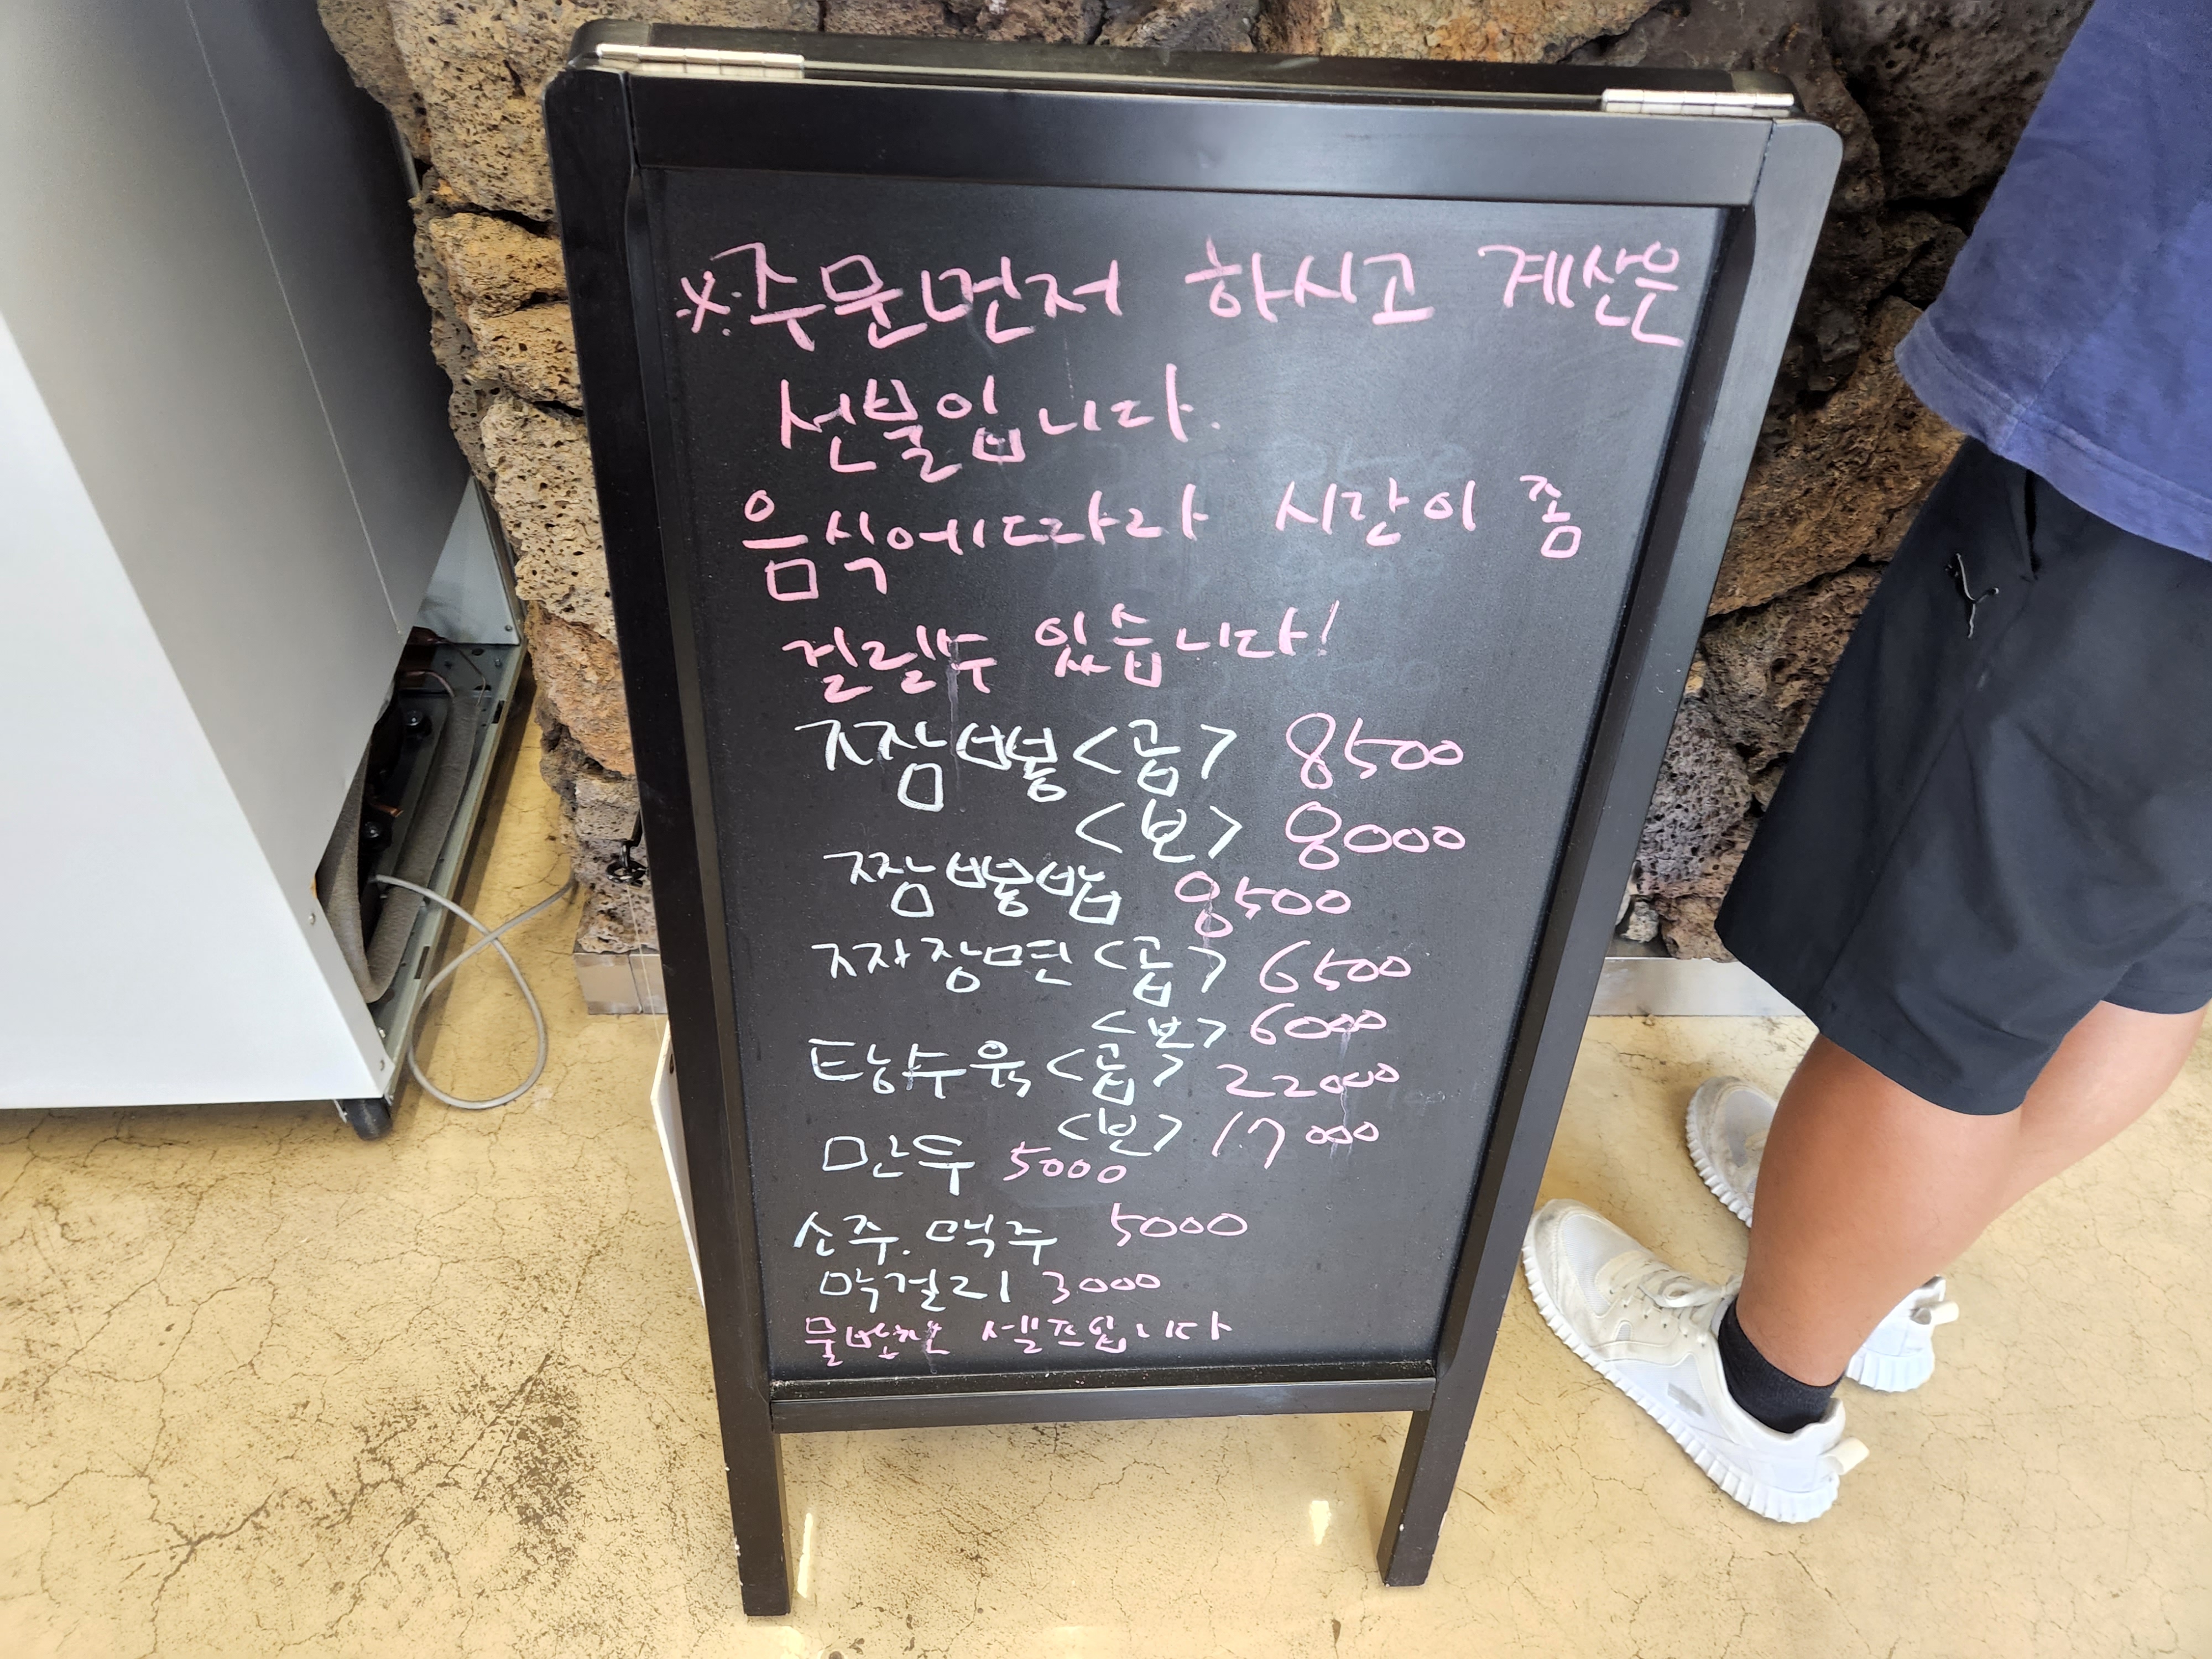 ※주문먼저 하시고 계산은
선불입니다.
음식에따라 시간이 좀
걸릴수 있습니다!
짬뽕<곱> 8500
<보> 8000
짬뽕밥 8500
짜장면<곱> 6500
<보> 6000
탕수육<곱> 22000
<보> 17000
만두 5000
소주.맥주 5000
막걸리 3000
물반찬 셀프입니다